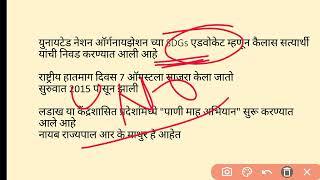 युनायटेड नेशन ऑर्गनायझेशन च्या SDGs एडवोकेट म्हणून कैलास सत्यार्थी
यांची निवड करण्यात आली आहे
राष्ट्रीय हातमाग दिवस 7 ऑगस्टला साजरा केला जातो
सुरुवात 2015 पासून झाली
लडाख या केंद्रशासित प्रदेशामध्ये "पाणी माह अभियान" सुरू करण्यात
आले आहे
नायब राज्यपाल आर के माथुर हे आहेत
UNO